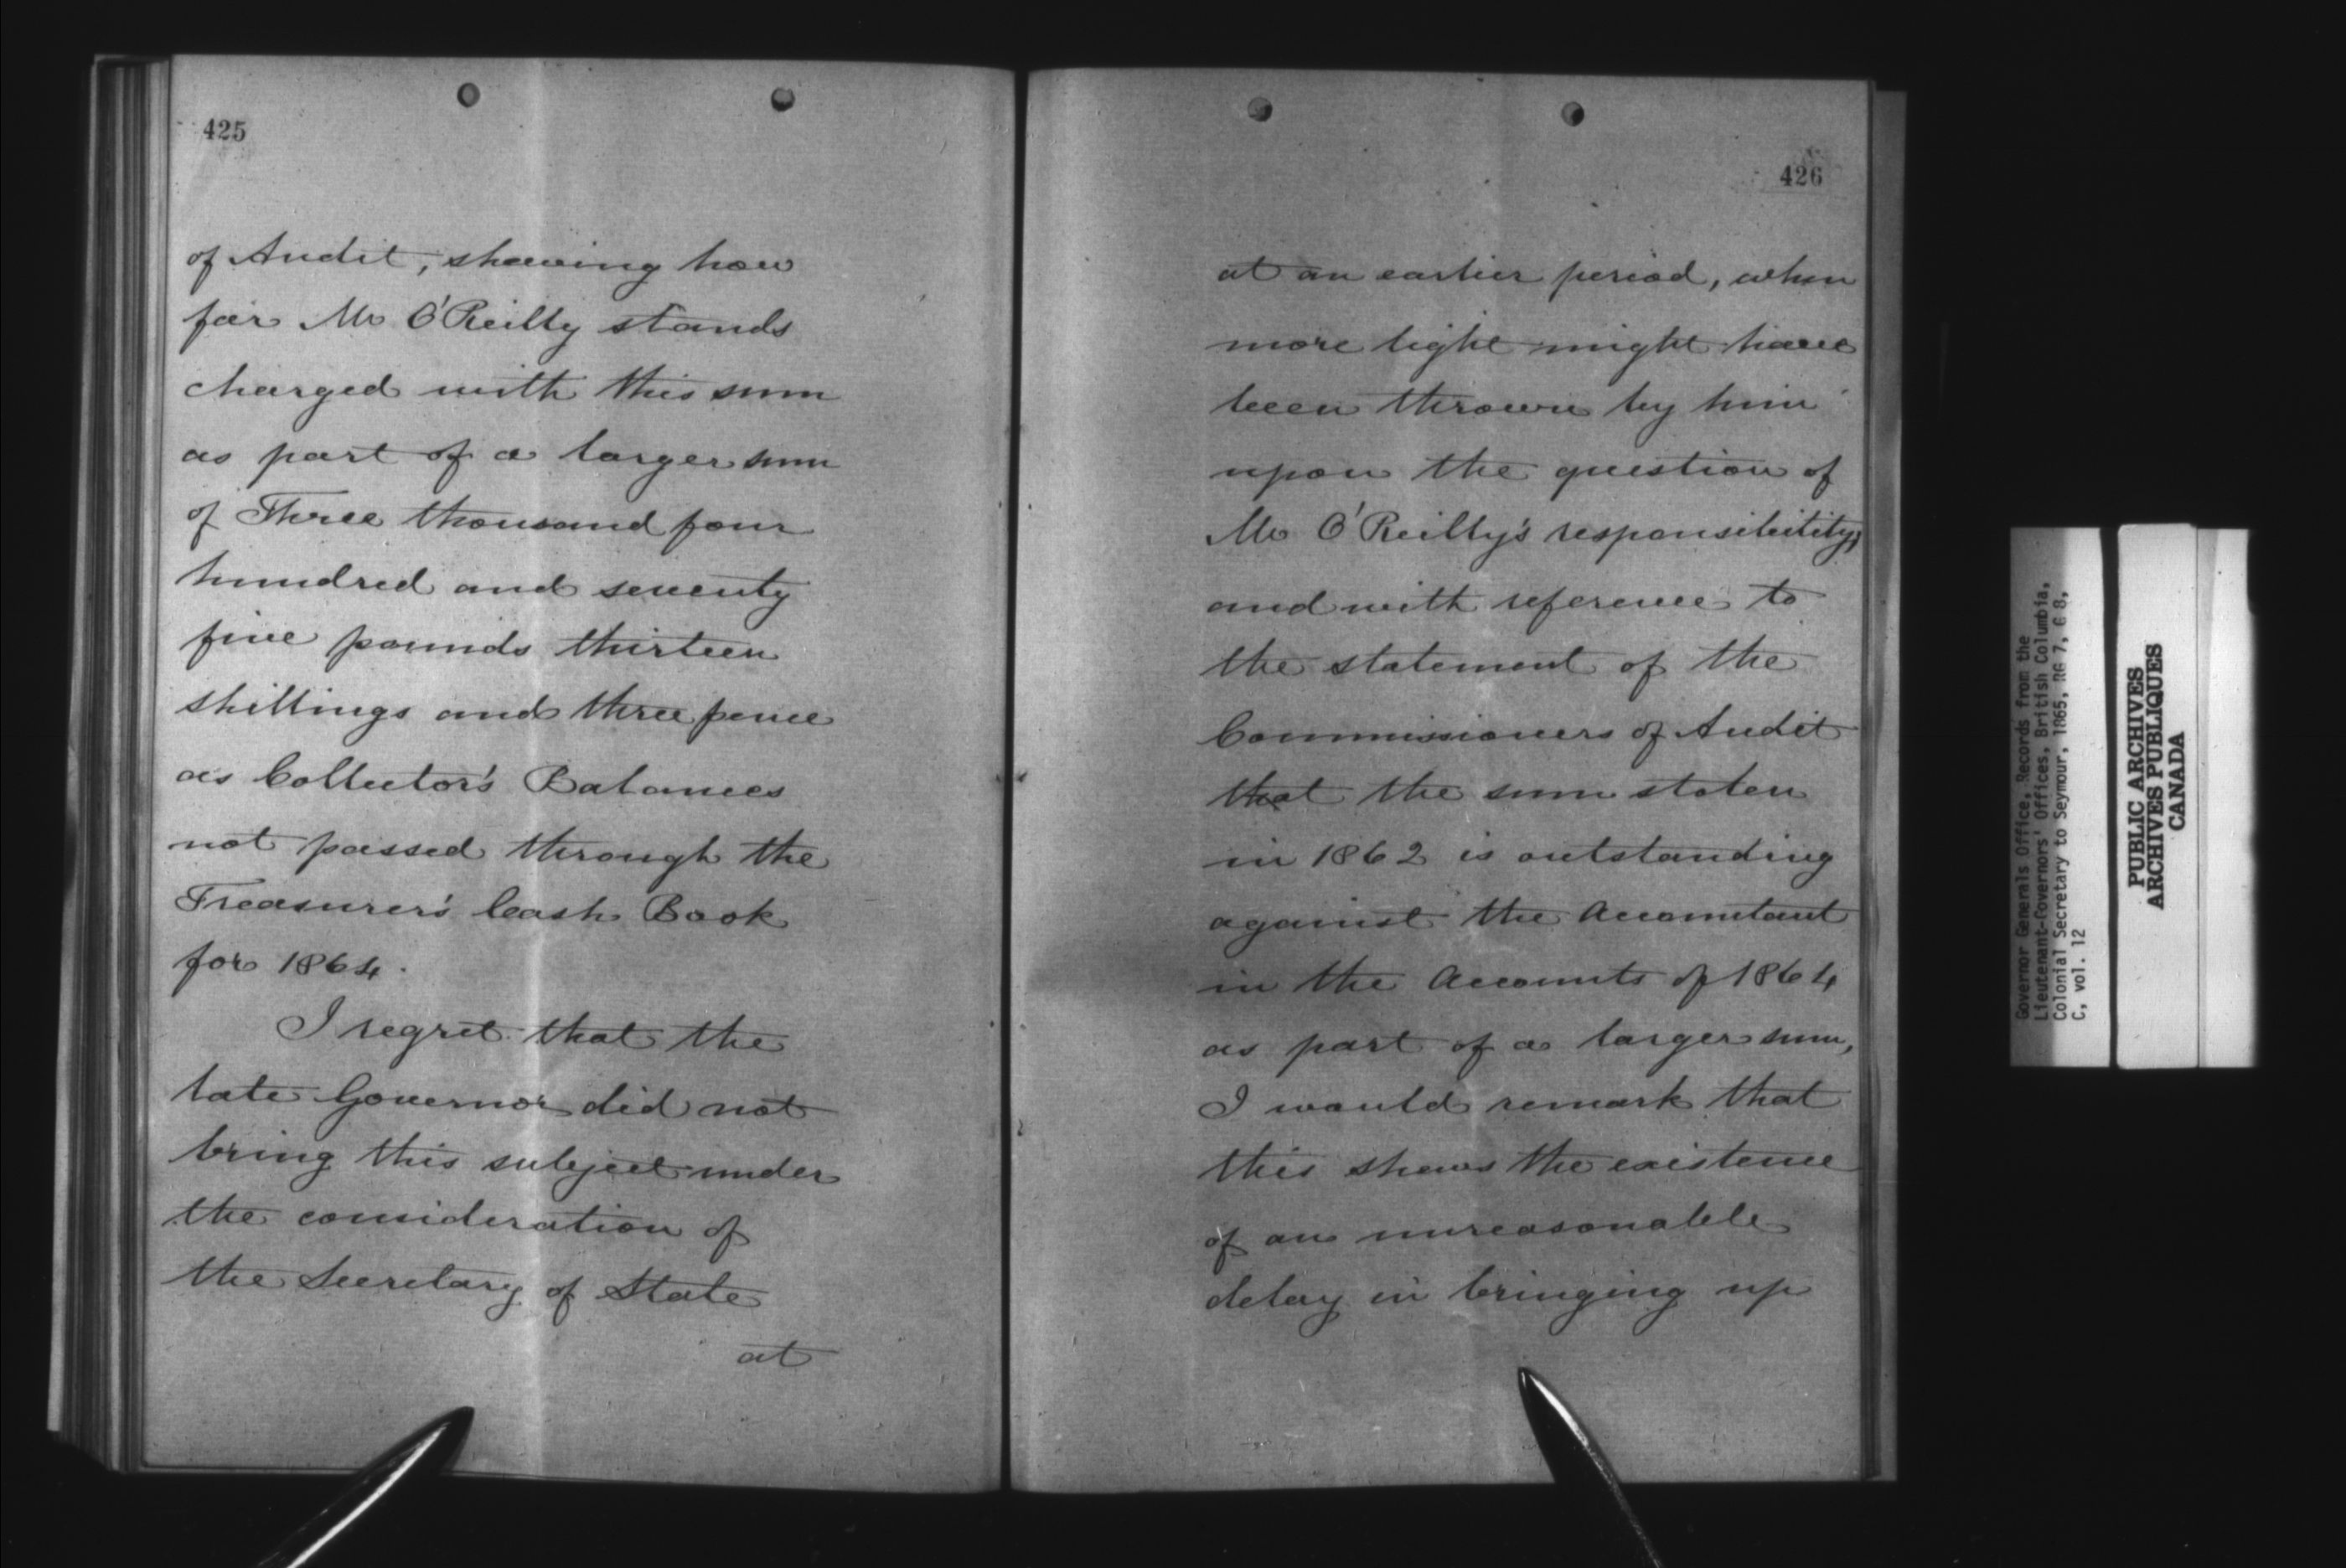 425
of Audit, shewing how
far Mr O'Reilly stands
charged with this sum
as part of a larger sum
of Three thousand four
hundred and seventy
five pounds thirteen
shillings and three pence
as Collector's Balances
not passed through the
Treasurer's Cash Book
for 1864.
I regret that the
late Governor did not
bring this subject under
the consideration of
the Secretary of State
at
426
at an earlier period, when
more light might have
been thrown by him
upon the question of
Mr O'Reilly's responsibility;
and with reference to
the statement of the
Commissioners of Audit
that the sum stolen
in 1862 is outstanding
against the Accountant
in the Accounts of 1864
as part of a larger sum,
I would remark that
this shews the existence
of an unreasonable
delay in bringing up
Governor Generals Office, Records from the
Lieutenant-Governors' Offices, British Columbia,
Colonial Secretary to Seymour, 1865, RG 7, G 8,
C, vol. 12
PUBLIC ARCHIVES
ARCHIVES PUBLIQUES
CANADA